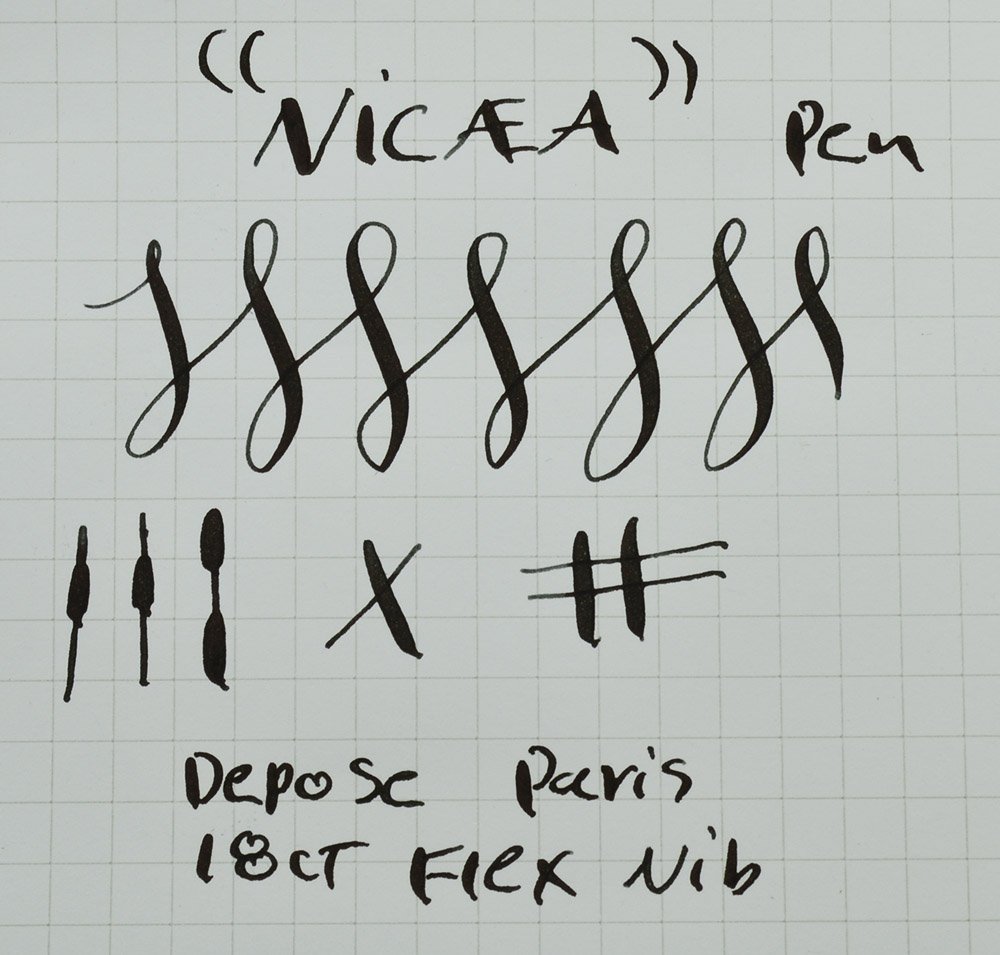 ((NiCÆA)) Pen
X #
Depose Paris
18CT Flex Nib